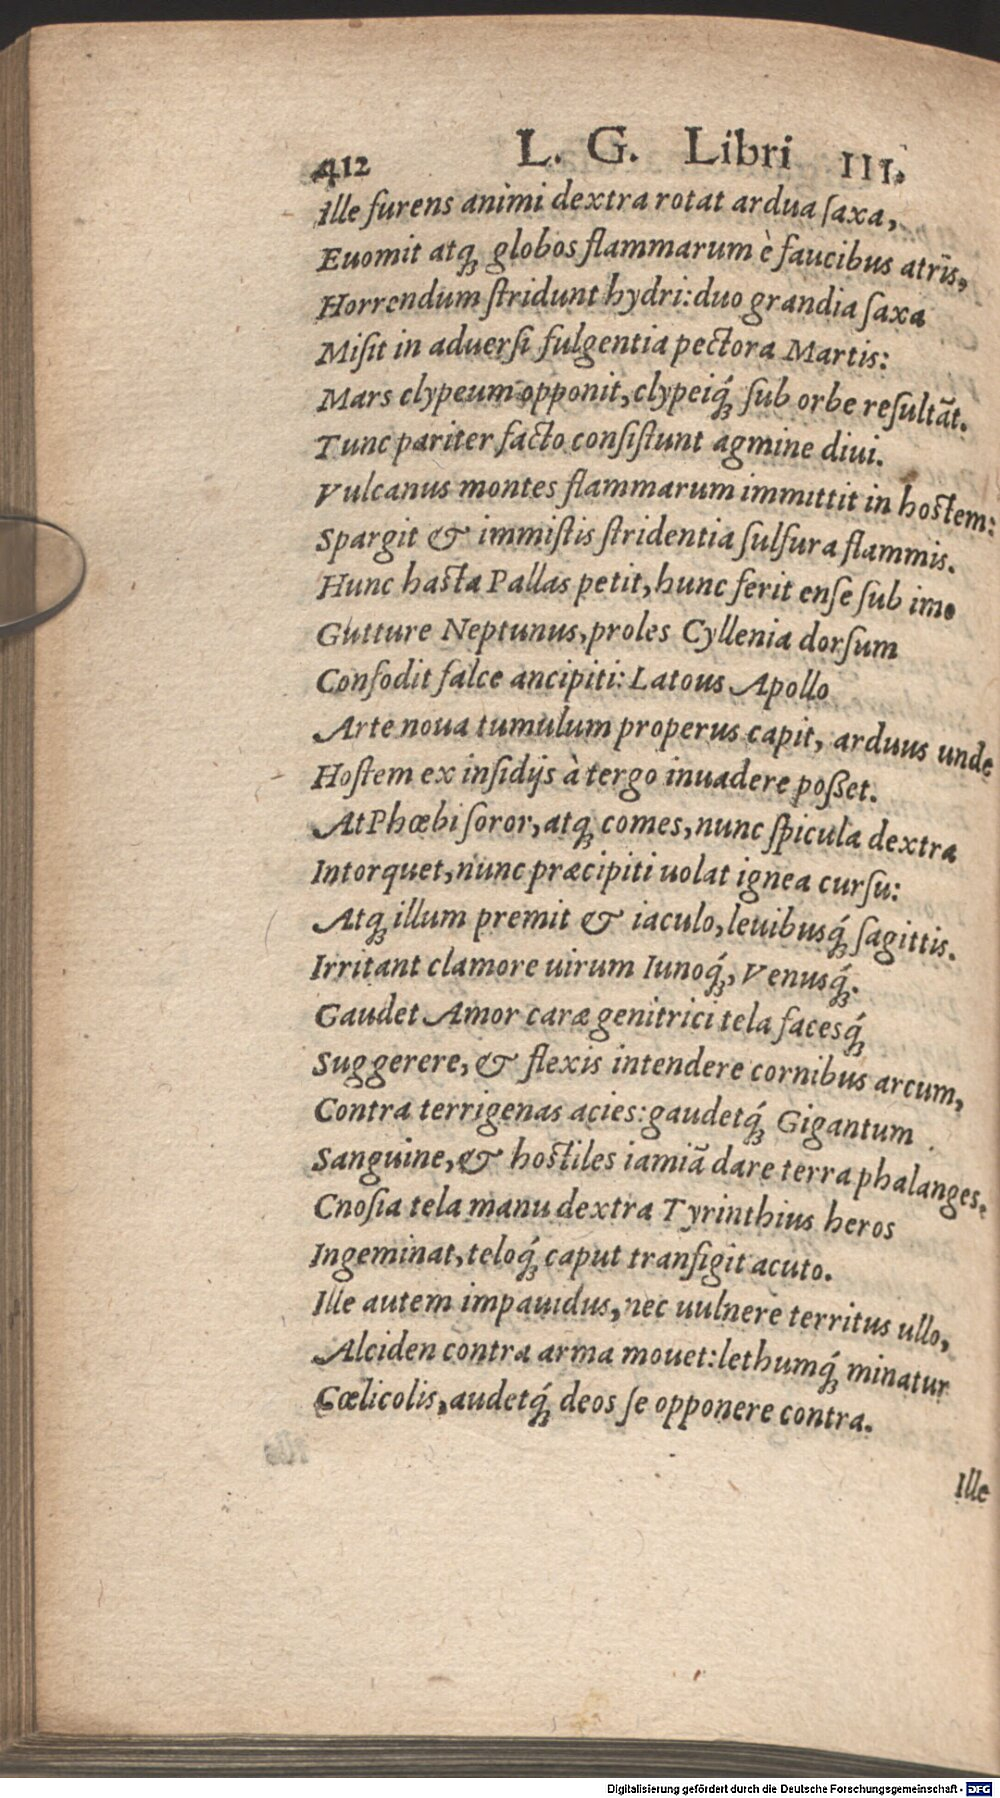 412 L. G. Libri III.
Ille furens animi dextra rotat ardua ſaxa,
Euomit atq́ꝫ globos flammarum è faucibus atris,
Horrendum ſtridunt hydri: duo grandia ſaxa
Miſit in aduerſi fulgentia pectora Martis:
Mars clypeum opponit, clypeiq́ꝫ ſub orbe reſultãt.
Tunc pariter facto conſiſtunt agmine diui.
Vulcanus montes flammarum immittit in hoſtem:
Spargit & immiſtis ſtridentia ſulfura flammis.
Hunc haſta Pallas petit, hunc ferit enſe ſub imo
Gutture Neptunus, proles Cyllenia dorſum
Confodit falce ancipiti: Latous Apollo
Arte noua tumulum properus capit, arduus unde
Hoſtem ex inſidijs à tergo inuadere poßet.
At Phœbi ſoror, atqꝫ comes, nunc ſpicula dextra
Intorquet, nunc præcipiti uolat ignea curſu:
Atqꝫ illum premit & iaculo, leuibusq́ꝫ ſagittis.
Irritant clamore uirum Iunoq́ꝫ, Venusq́ꝫ.
Gaudet Amor caræ genitrici tela facesq́ꝫ
Suggerere, & flexis intendere cornibus arcum,
Contra terrigenas acies: gaudetq́ꝫ Gigantum
Sanguine, & hoſtiles iamiã dare terra phalanges.
Cnoſia tela manu dextra Tyrinthius heros
Ingeminat, teloq́ꝫ caput tranſigit acuto.
Ille autem impauidus, nec uulnere territus ullo,
Alciden contra arma mouet: lethumq́ꝫ minatur
Cœlicolis, audetq́ꝫ deos ſe opponere contra.
Ille
Digitalisierung gefördert durch die Deutsche Forschungsgemeinschaft - DFG